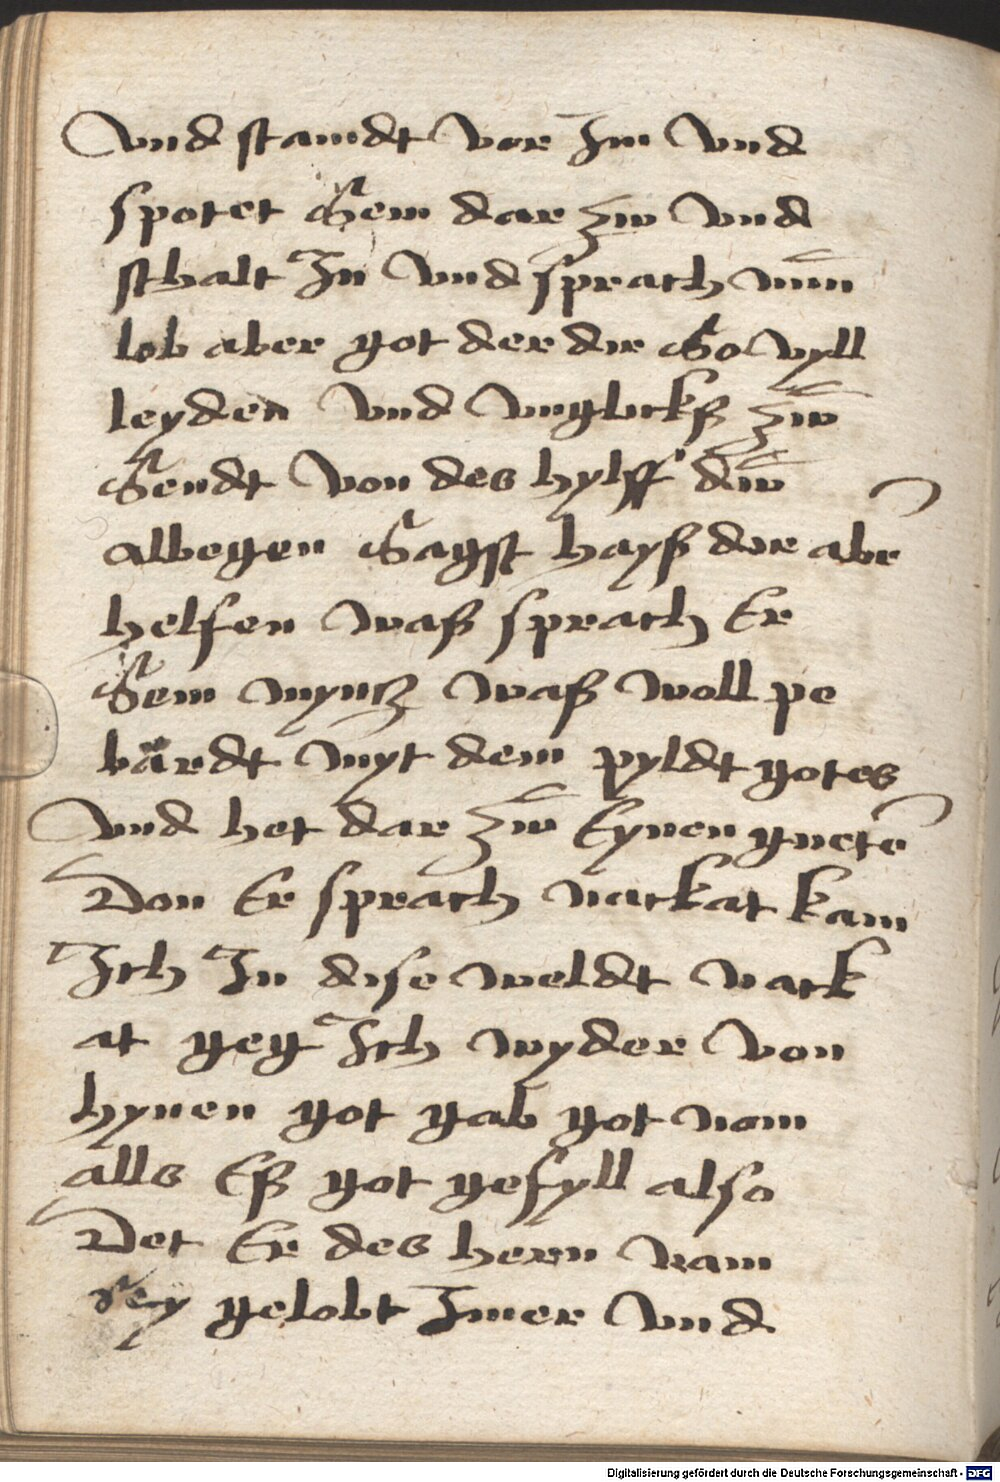 Vnd standt vor Im Vnd
spotet Sein dar zw Vnd
schalt In Vnd sprach nun
lob aber got der dir So vyll
leyden Vnd Vnglickß zw
Sendt Von des hylff dw
albegen Sagst hayß dir aber
helfen waß sprach Er
Sein mynß waß woll pe
bärdt myt dem pyldt gotes
Vnd het dar zw Eynen gueten
Don Er sprach nackat kam
Ich In dise weldt nack
at geg Ich wyder Von
hynen got gab got nam
alls Eß got gefyll also
Det Er des hern nam
sey gelobt Imer Vnd
Digitalisierung gefördert durch die Deutsche Forschungsgemeinschaft - DFG